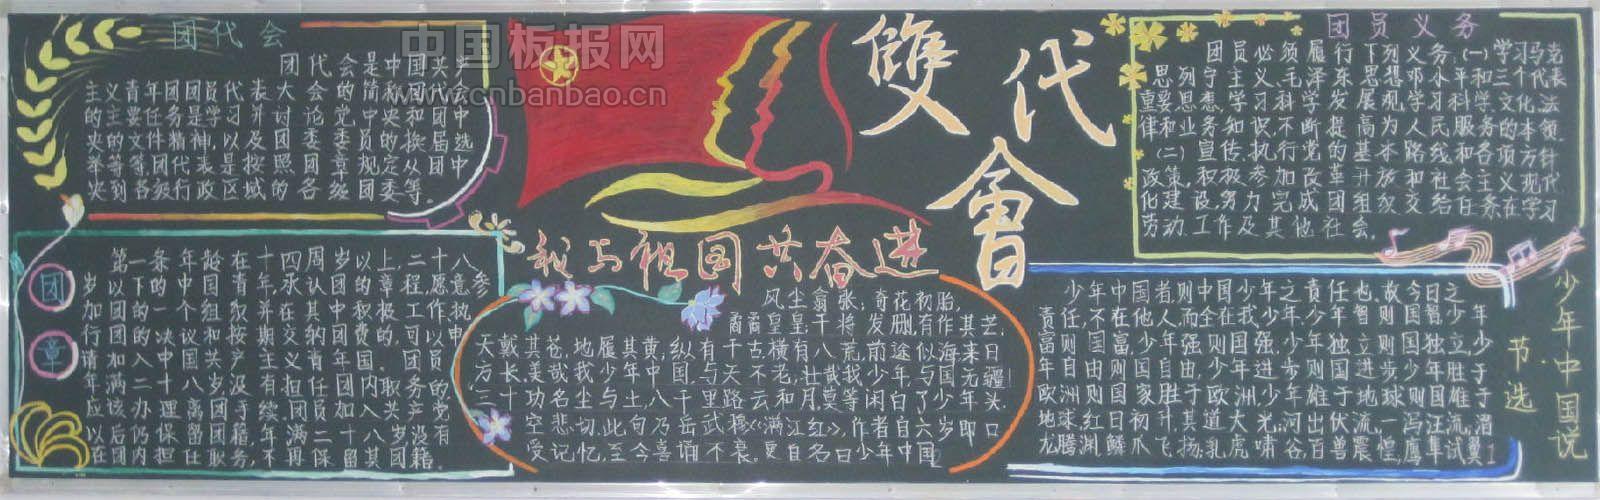 团代会
团代会是中国共产
主义青年团团员代表大会的简称和团代会
的主要任务是学习并讨论党中央和团中
央的文件精神,以及团委委员的换届选
举等等,团代表是按照团章规定从中
央到各级行政区域的各级团委等。
中国板报网
www.cnbanbao.cn
雙代會
我与祖国共奋进
团员义务
团员必须履行下列义务:(一)学习马克
思列宁主义毛泽东思想邓小平和三个代表
重要思想,学习科学发展观,学习科学文化法
律和业务知识,不断提高为人民服务的本领
(二)宣传.执行党的基本路线和各项方针
政策,积极参加改革开放和社会主义现代
化建设努力完成团组织交给自务在学习
劳动.工作及其他社会.
团章
第一条年龄在十四周岁以上,二十八
岁以下的中国青年,承认团的章程,愿意参
加团的一个组织并在其中积极工作,执
行团的决议和按期交纳团费的,可以申
请加入中国共产主义青年团。团员
年满二十八周岁没有担任团内职务,
应该办理离团手续,团员加入共产党
以后仍保留团籍,年满二十八岁没有
在团内担任团职务,不再保留其团籍。
风尘翕张;奇花初胎,
矞矞皇皇;干将发硎,有作其芒.
天戴其苍,地履其黄;纵有千古,横有八荒,前途似海,来日
方长.美哉我少年中国,与天不老,壮哉我少年,与国无疆!
三十功名尘与土八千里路云和月,莫等闲白了少年头,
空悲切.此句乃岳武穆《满江红》,作者自六岁即口
受记忆,至今喜诵不衰.更自名曰少年中国
少年中国者,则中国少年之责任也.故今日之
责任,不在他人,而全在我少年.少年智则国智,少年
富则国富,少年强则国强,少年独立则国独立,少年
自由则国自由,少年进步则国进步,少年胜于
欧洲则国胜于欧洲,少年雄于地球则国雄于
地球.红日初升,其道大光;河出伏流,一泻汪洋;
龙腾渊,鳞爪飞扬;乳虎啸谷,百兽震惶,鹰隼试翼
少年中国说
节选